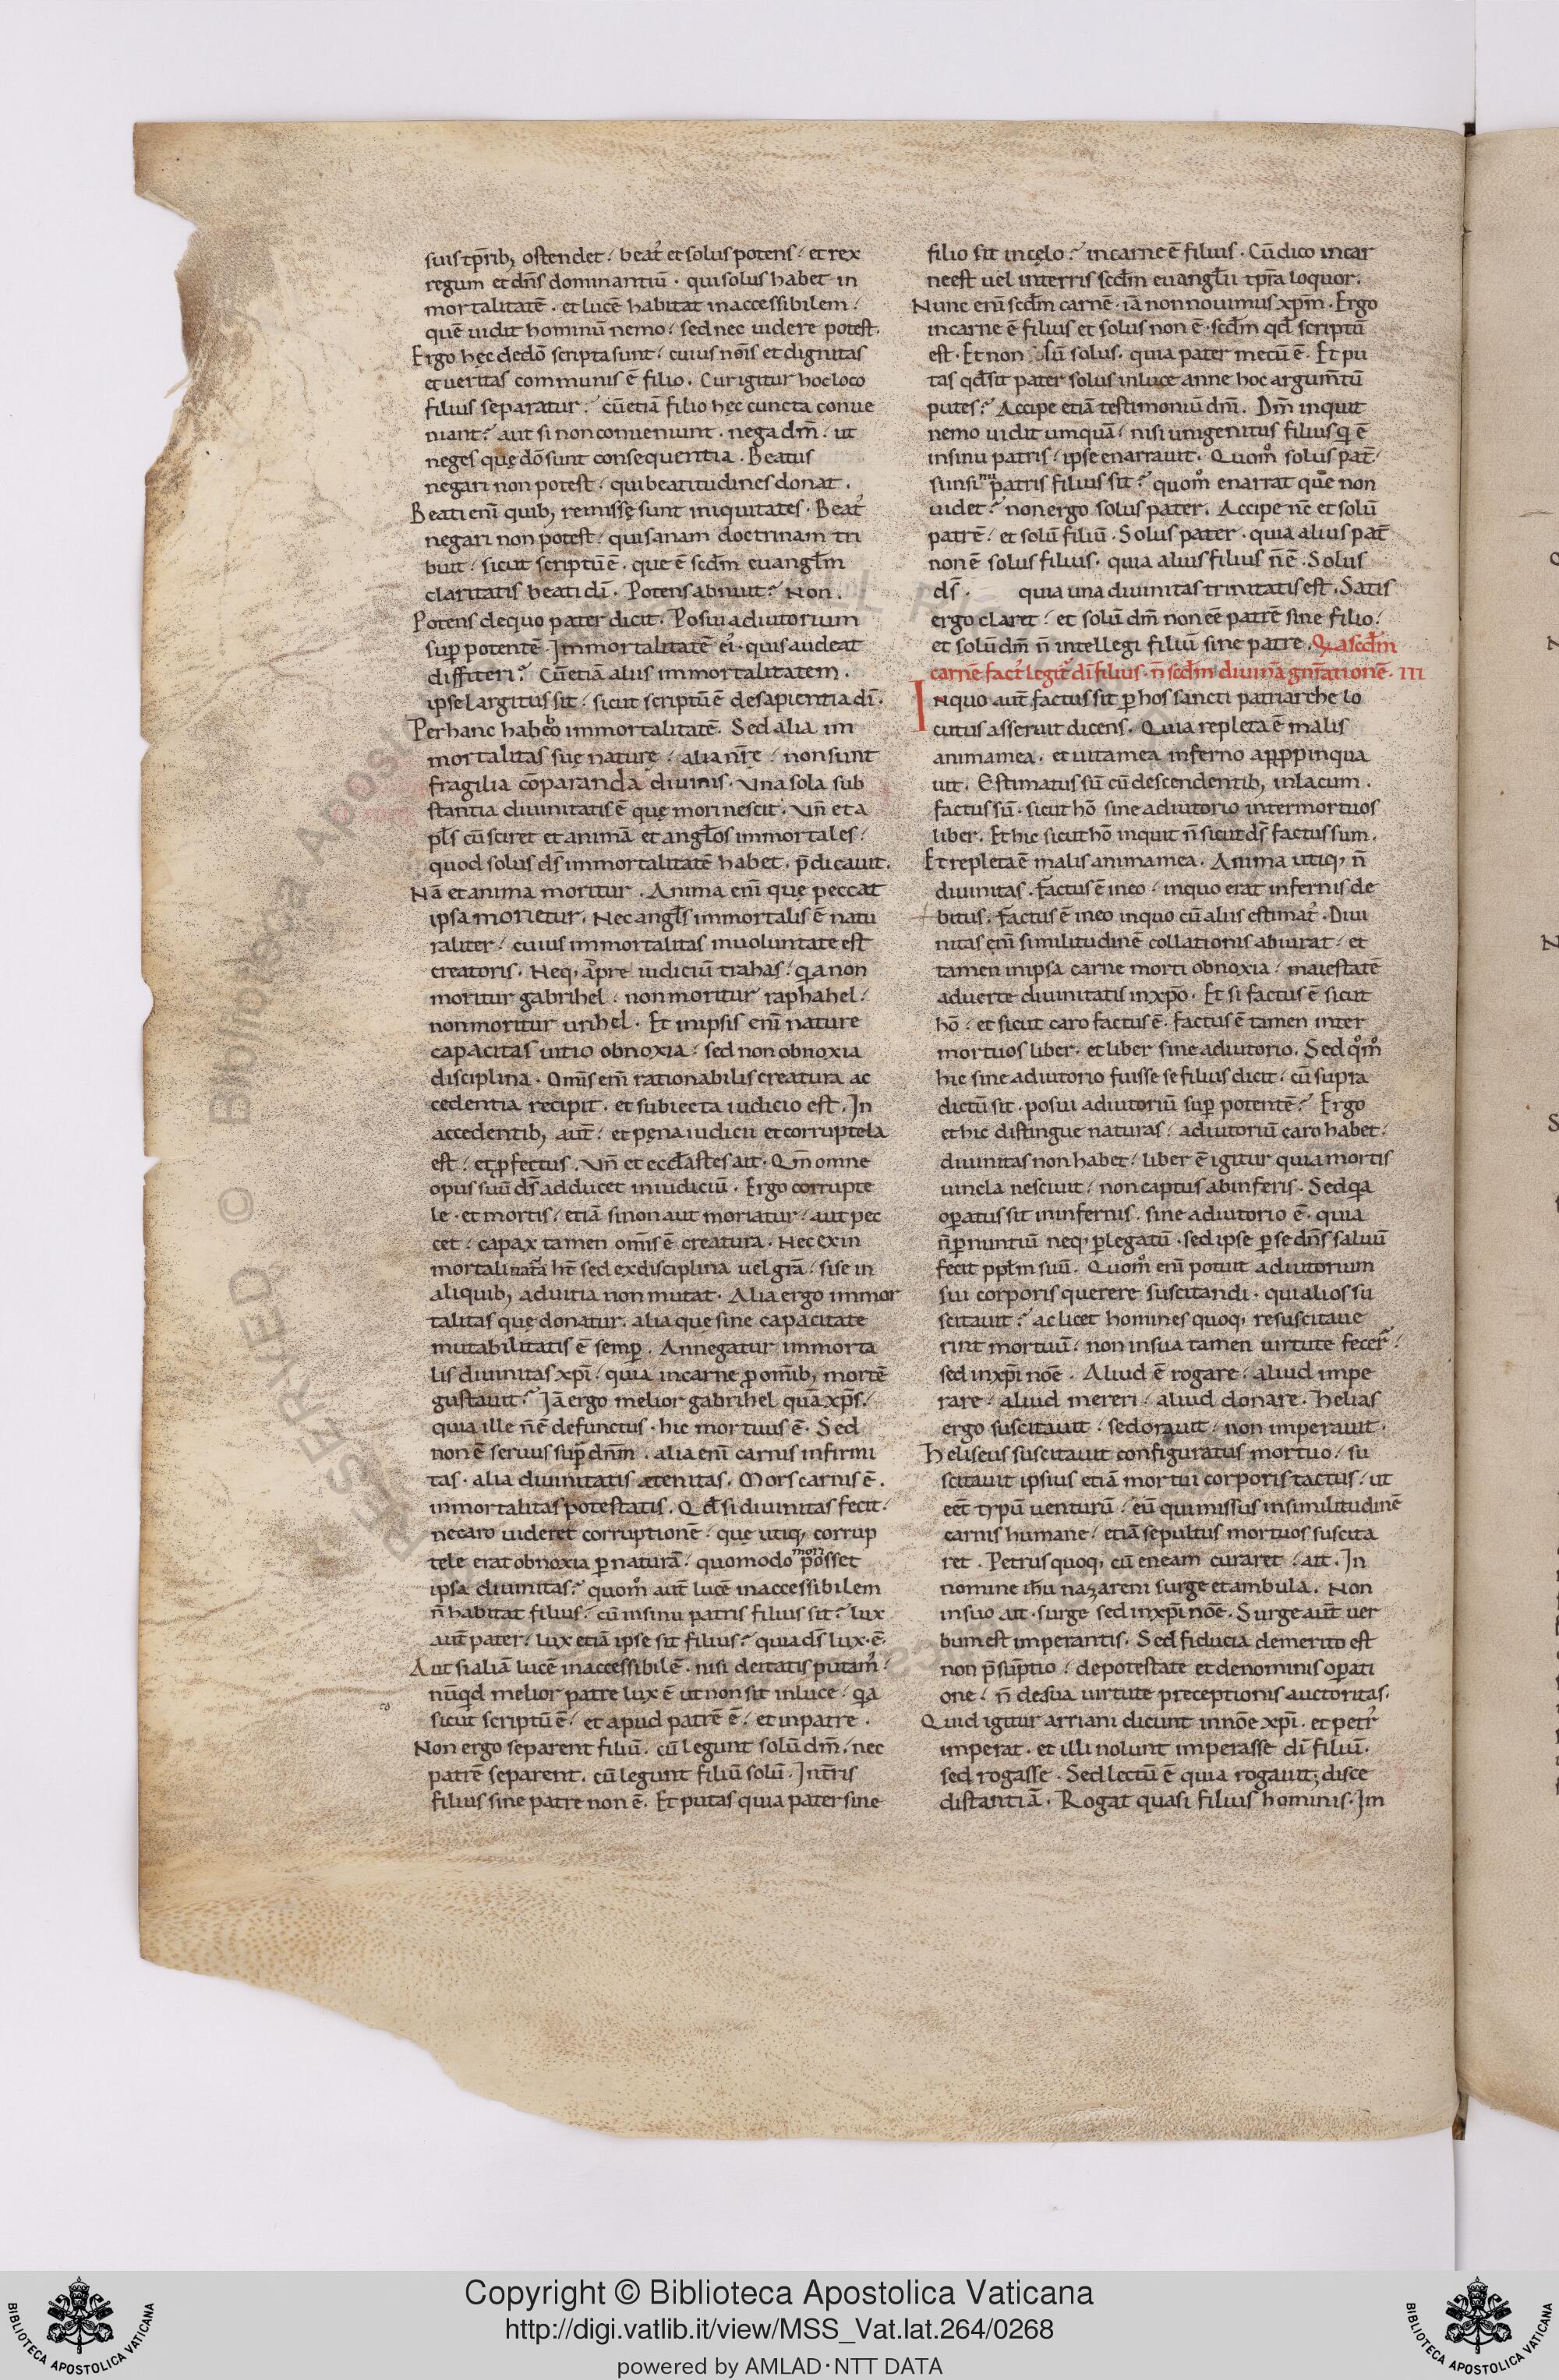 suis tp̄rib; ostendet / beat᷒ et solus potens / et rex
regum et dn̄s dominantiū · qui solus habet in
mortalitatē · et lucē habitat inaccessibilem /
quē uidit hominū nemo / sed nec uidere potest.
Ergo hęc de dō scripta sunt / cuius nōis et dignitas
et ueritas communis ē filio . Cur igitur hoc loco
filius separatur ? cū etiā filio hęc cuncta conue
niant ? aut si non conueniunt . nega dm̄ / ut
neges quę dō sunt consequentia . Beatus
negari non potest / qui beatitudines donat .
Beati enī quib; remissę sunt iniquitates . Beat᷒
negari non potest / qui sanam doctrinam tri
buit / sicut scriptū ē . que ē scdm̄ euangl̄m
claritatis beati dī . Potens abnuit ? Non .
Potens de quo pater dicit . Posui adiutorium
sup̱ potentē . Immortalitatē ei᷒ . quis audeat
diffiteri ? Cū etiā aliis immortalitatem .
ipse largitus sit / sicut scriptū ē de sapientia dī .
Per hanc habebo immortalitatē . Sed alia im
mortalitas suę naturę / alia nr̄ę / non sunt
fragilia cōparanda diuinis . Vna sola sub
stantia diuinitatis ē quę mori nescit . Vn̄ et a
pl̄s cū sciret et animā et angl̄os immortales /
quod solus ds̄ immortalitatē habet . p̄dicauit .
Nā et anima moritur . Anima enī quę peccat
ipsa morietur . Nec angl̄s immortalis ē natu
raliter / cuius immortalitas in uoluntate est
creatoris . Neq; ap̊re iudiciū trahas / qa non
moritur gabrihel / non moritur raphahel /
non moritur urihel . Et in ipsis enī nature
capacitas uitio obnoxia / sed non obnoxia
disciplina . Om̄s enī rationabilis creatura ac
cedentia recipit . et subiecta iudicio est . In
accedentib; aut̄ / et pęna iudicii et corruptela
est / et ꝓfectus . Vn̄ et eccl̄astes ait . Qm̄ omne
opus suū ds̄ adducet in iudiciū . Ergo corrupte
le . et mortis / etiā si non aut moriatur / aut pec
cet / capax tamen om̄is ē creatura . Nec ex in
mortali nat̄a ht̄ sed ex disciplina uel grā / si se in
aliquib; ad uitia non mutat . Alia ergo immor
talitas quę donatur . alia que sine capacitate
mutabilitatis ē semp̱ . An negatur immorta
lis diuinitas xp̄i / quia in carne ꝓ om̄ib; mortē
gustauit ? Iā ergo melior gabrihel quā xp̄s /
quia ille n̄ ē defunctus . hic mortuus ē . Sed
non ē seruus sup̱ dn̄m . alia enī carnis infirmi
tas . alia diuinitatis ætenitas . Mors carnis ē .
inmortalitas potestatis . Qd̄ si diuinitas fecit /
ne caro uideret corruptionē / quę utiq; corrup
tele erat obnoxia ꝑ naturā / quomodo mori posset
ipsa diuinitas ? quom̊ aut̄ lucē inaccessibilem
n̄ habitat filius / cū in sinu patris filius sit ? lux
aut̄ pater / lux etiā ipse sit filius ? quia ds̄ lux . ē .
Aut si aliā lucē inaccessibilē . nisi deitatis putam᷒ /
nūqd melior patre lux ē ut non sit in luce / qa
sicut scriptū ē / et apud patrē ē / et in patre .
Non ergo separent filiū . cū legunt solū dm̄ / nec
patrē separent . cū legunt filiū solū . In tr̄is
filius sine patre non ē . Et putas quia pater sine
filio sit in cęlo ? in carne ē filius . Cū dico in car
ne est uel in terris scdm̄ euangl̄ii tp̄ra loquor .
Nunc enī scdm̄ carnē . iā non nouimus xp̄m . Ergo
in carne ē filius et solus non ē . scdm̄ qd̄ scriptū
est . Et non lū solus . quia pater mecū ē . Et pu
tas qd̄ sit pater solus in luce an ne hoc argum̄tū
putes ? Accipe etiā testimoniū dm̄ . Dm̄ inquit
nemo uidit umquā / nisi unigenitus filius q̱ ē
in sinu patris / ipse enarrauit . Quom̊ solus pat̄ /
si in sinu patris filius sit ? quom̊ enarrat quē non
uidet ? non ergo solus pater . Accipe nc̄ et solū
patrē / et solū filiū . Solus pater . quia alius pat̄
non ē solus filius . quia alius filius n̄ ē . Solus
ds̄ . quia una diuinitas trinitatis est . Satis
ergo claret / et solū dm̄ non eē patrē sine filio /
et solū dm̄ n̄ intellegi filiū sine patre . Quia scdm̄
carnē fact᷒ legit᷒ dī filius . n̄ scdm̄ diuinā gn̄rationē . III
In quo aut̄ factus sit ꝑ hos sancti patriarche lo
cutus asseruit dicens . Quia repleta ē malis
anima mea . et uita mea inferno app̱ꝓpinqua
uit . Estimatus sū cū descendentib; in lacum .
factus sū . sicut hō sine adiutorio inter mortuos
liber . Et hic sicut hō inquit n̄ sicut ds̄ factus sum .
Et repleta ē malis anima mea . Anima utiq; n̄
diuinitas . factus ē in eo / in quo erat infernis de
bitus . factus ē in eo in quo cū aliis estimat᷒ . Diui
nitas enī similitudinē collationis abiurat / et
tamen in ipsa carne morti obnoxia / maiestatē
aduerte diuinitatis in xp̄o . Et si factus ē sicut
hō / et sicut caro factus ē . factus ē tamen inter
mortuos liber . et liber sine adiutorio . Sed qm̊̊
hic sine adiutorio fuisse se filius dicit / cū supra
dictū sit . posui adiutoriū sup̱ potentē ? Ergo
et hic distingue naturas / adiutoriū caro habet /
diuinitas non habet / liber ē igitur quia mortis
uincla nesciuit / non captus ab inferis . Sed qa
op̱atus sit in infernis . sine adiutorio ē . quia
n̄ ꝑ nuntiū neq; ꝑ legatū . sed ipse ꝑ se dn̄s saluū
fecit ppl̄m suū . Quom̊ enī potuit adiutorium
sui corporis querere suscitandi . qui alios su
scitauit ? ac licet homines quoq; resuscitaue
rint mortuū / non in sua tamen uirtute fecer̄ /
sed in xp̄i nōe . Aliud ē rogare / aliud impe
rare / aliud mereri / aliud donare . Helias
ergo suscitauit / sed orauit / non imperauit .
Heliseus suscitauit configuratus mortuo / su
scitauit ipsius etiā mortui corporis tactus / ut
eēt typū uenturū / eū qui missus in similitudinē
carnis humane / etiā sepultus mortuos suscita
ret . Petrus quoq; cū eneam curaret / ait . In
nomine ih̄u nazareni surge et ambula . Non
in suo ait . surge sed in xp̄i nōe . Surge aut̄ uer
bum est imperantis . Sed fiducia de merito est
non p̄sūptio / de potestate et de nominis op̱ati
one / n̄ de sua uirtute preceptionis auctoritas .
Quid igitur arriani dicunt in nōe xp̄i . et petr᷒
imperat . et illi nolunt imperasse dī filiū .
sed rogasse . Sed lectū ē quia rogauit ; disce
distantiā . Rogat quasi filius hominis . Im
Copyright © Biblioteca Apostolica Vaticana
http://digi.vatlib.it/view/MSS_Vat.lat.264/0268
powered by AMLAD·NTT DATA
BIBLIOTECA APOSTOLICA VATICANA
BIBLIOTECA APOSTOLICA VATICANA